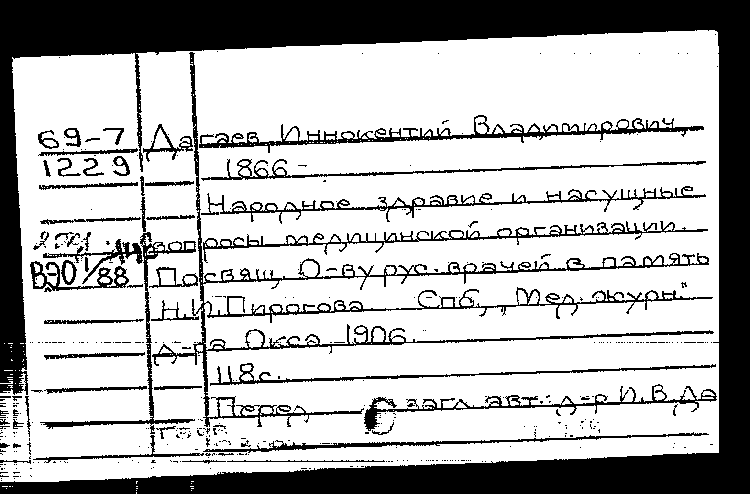 69-7 Дагаев, Иннокентий Владимирович,
1229 1866-
Народное здравие и насущные
вопросы медицинской организации.
В90/88 Посвящ. О-ву рус. врачей в память
Н.И. Пирогова Спб, "Мед. журн."
д-ра Окса, 1906.
118 с.
Перед загл. авт.: д-р И.В. Да